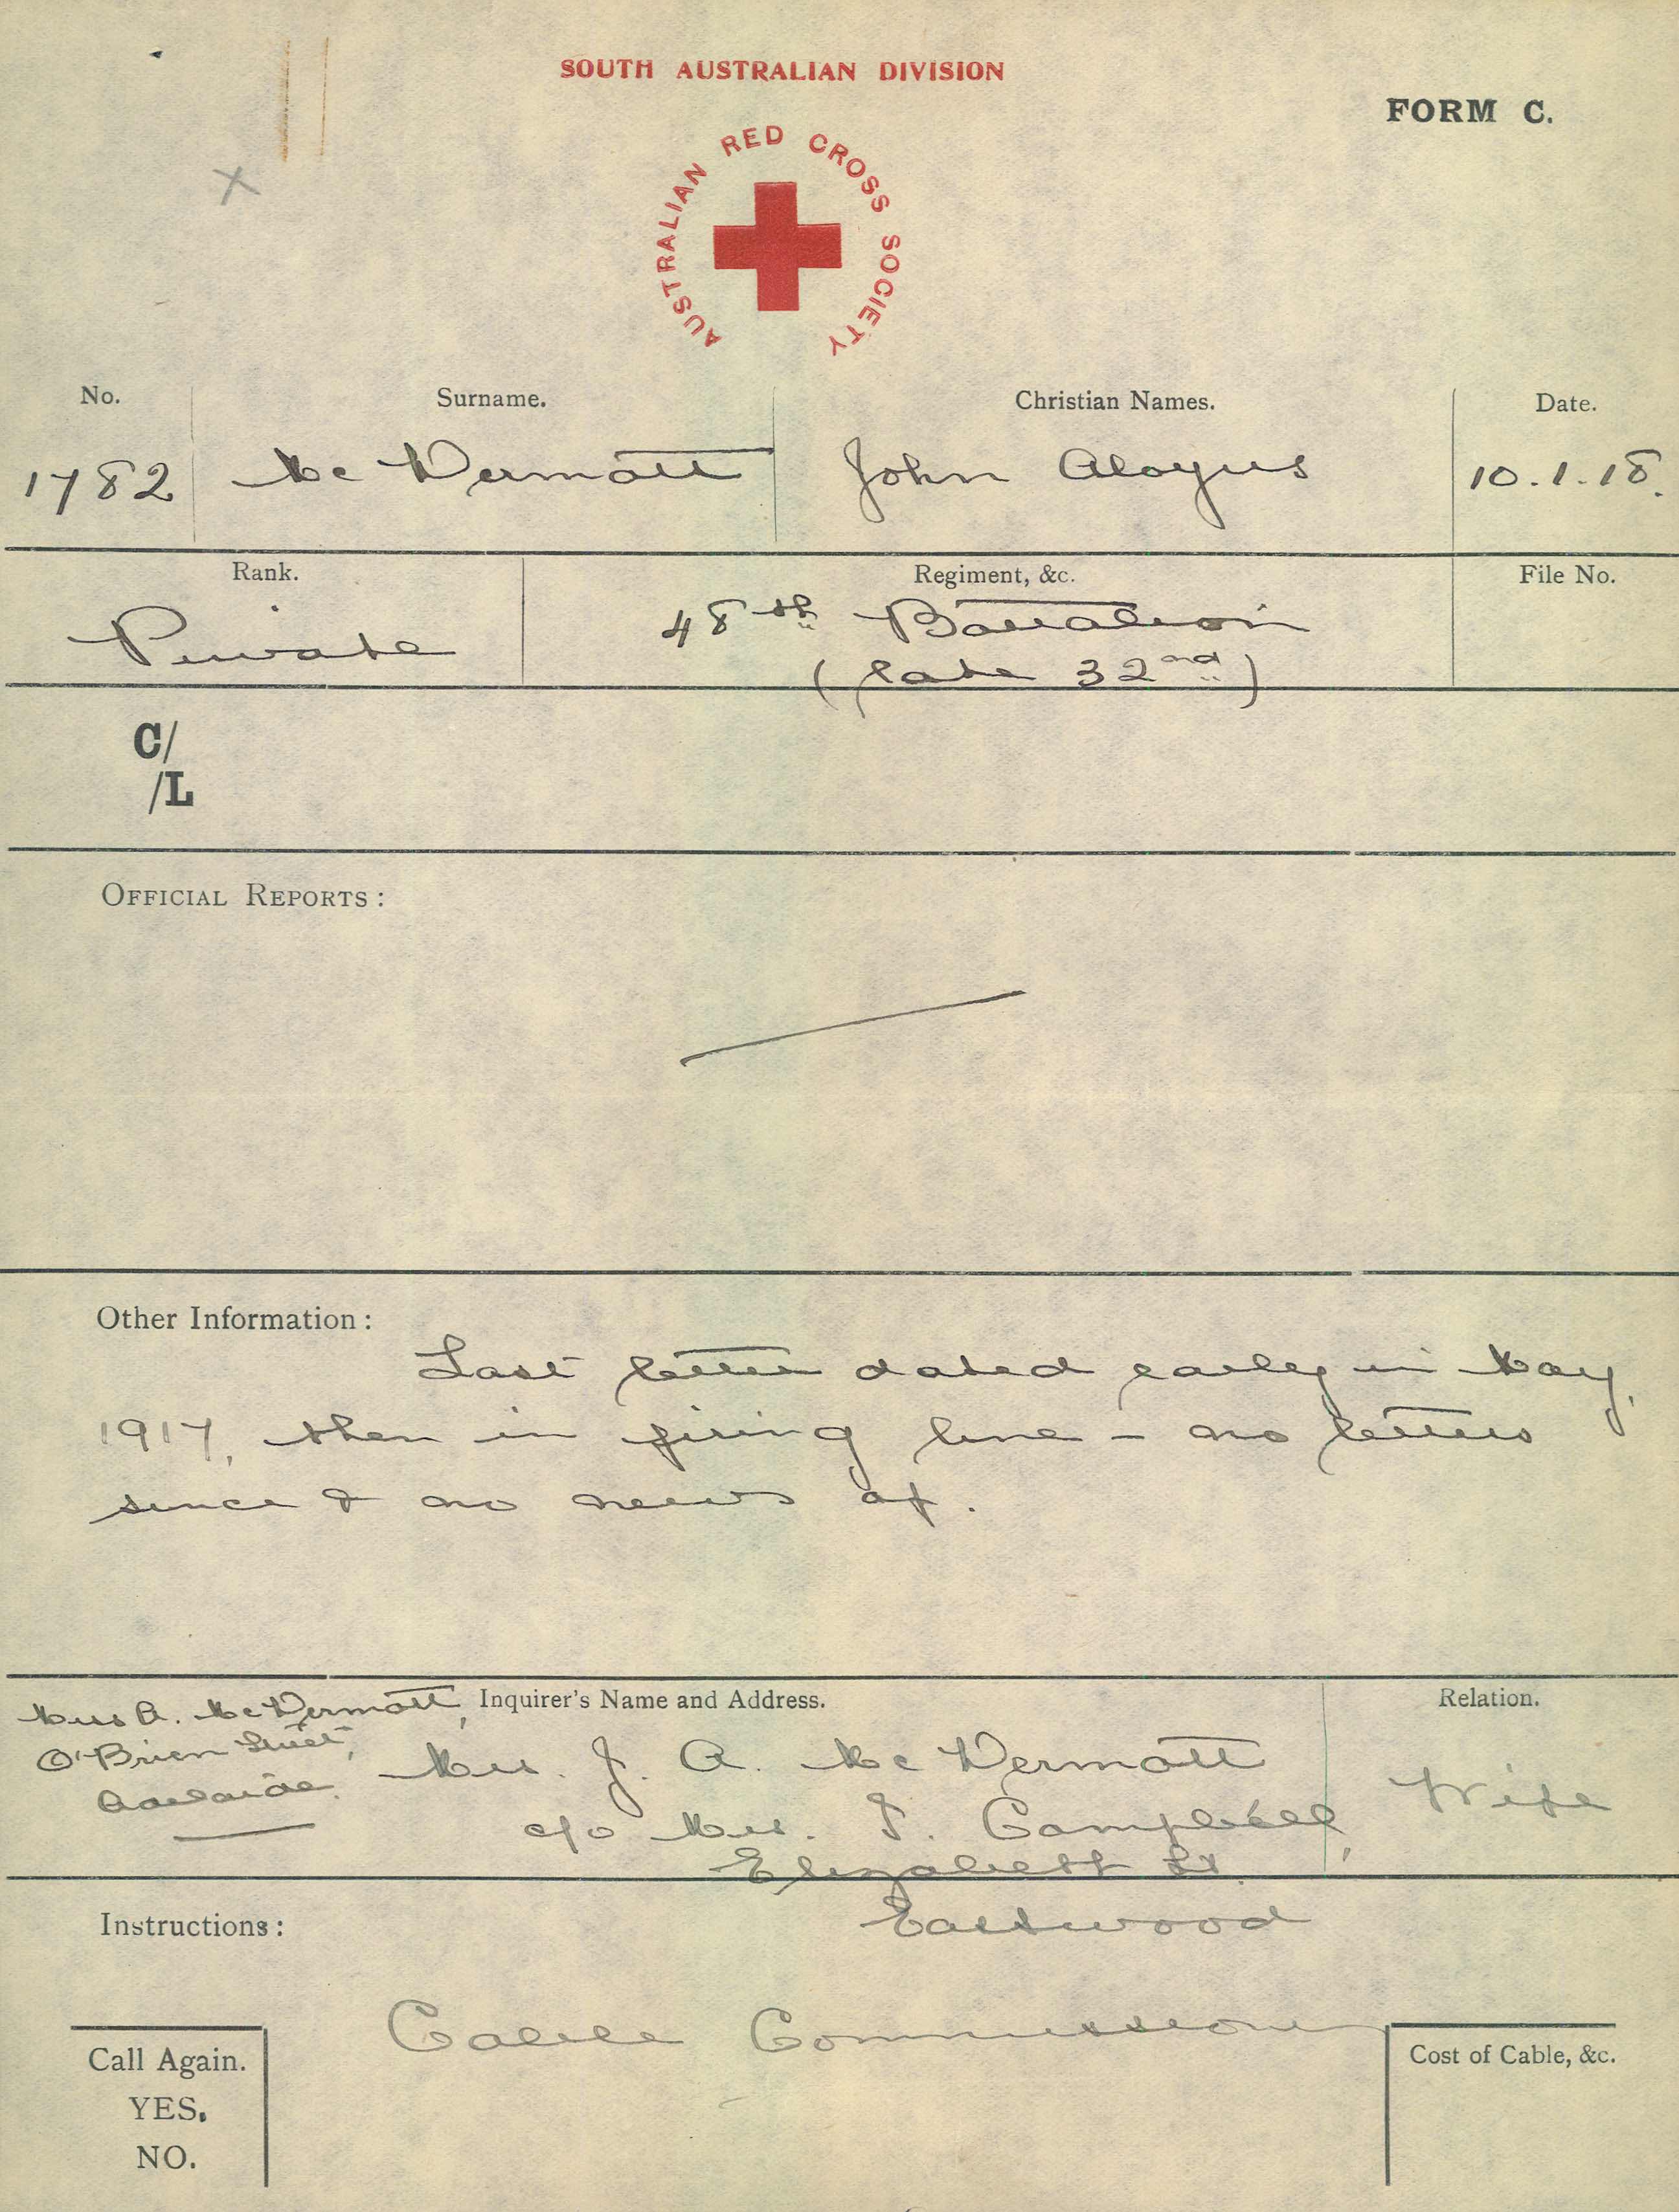 SOUTH AUSTRALIAN DIVISION
FORM C.
AUSTRALIAN RED CROSS SOCIETY
X
No. Surname. Christian Names. Date.
1782 McDermott John Aloyus 10.1.18.
Rank. Regiment, &c. File No.
Private 48th Battalion
(late 32nd)
C/
/L
OFFICIAL REPORTS:
Other Information:
Last letter dated early in May,
1917, then in firing line - no letters
since & no news of.
Inquirer's Name and Address. Relation.
A. McDermott,
O'Brien Street,
Adelaide.
Mrs. J. A. McDermott Wife
c/o Mrs. Campbell,
Elizabeth St
Eastwood
Instructions:
Cable Commissioner
Call Again.
YES.
NO.
Cost of Cable, &c.